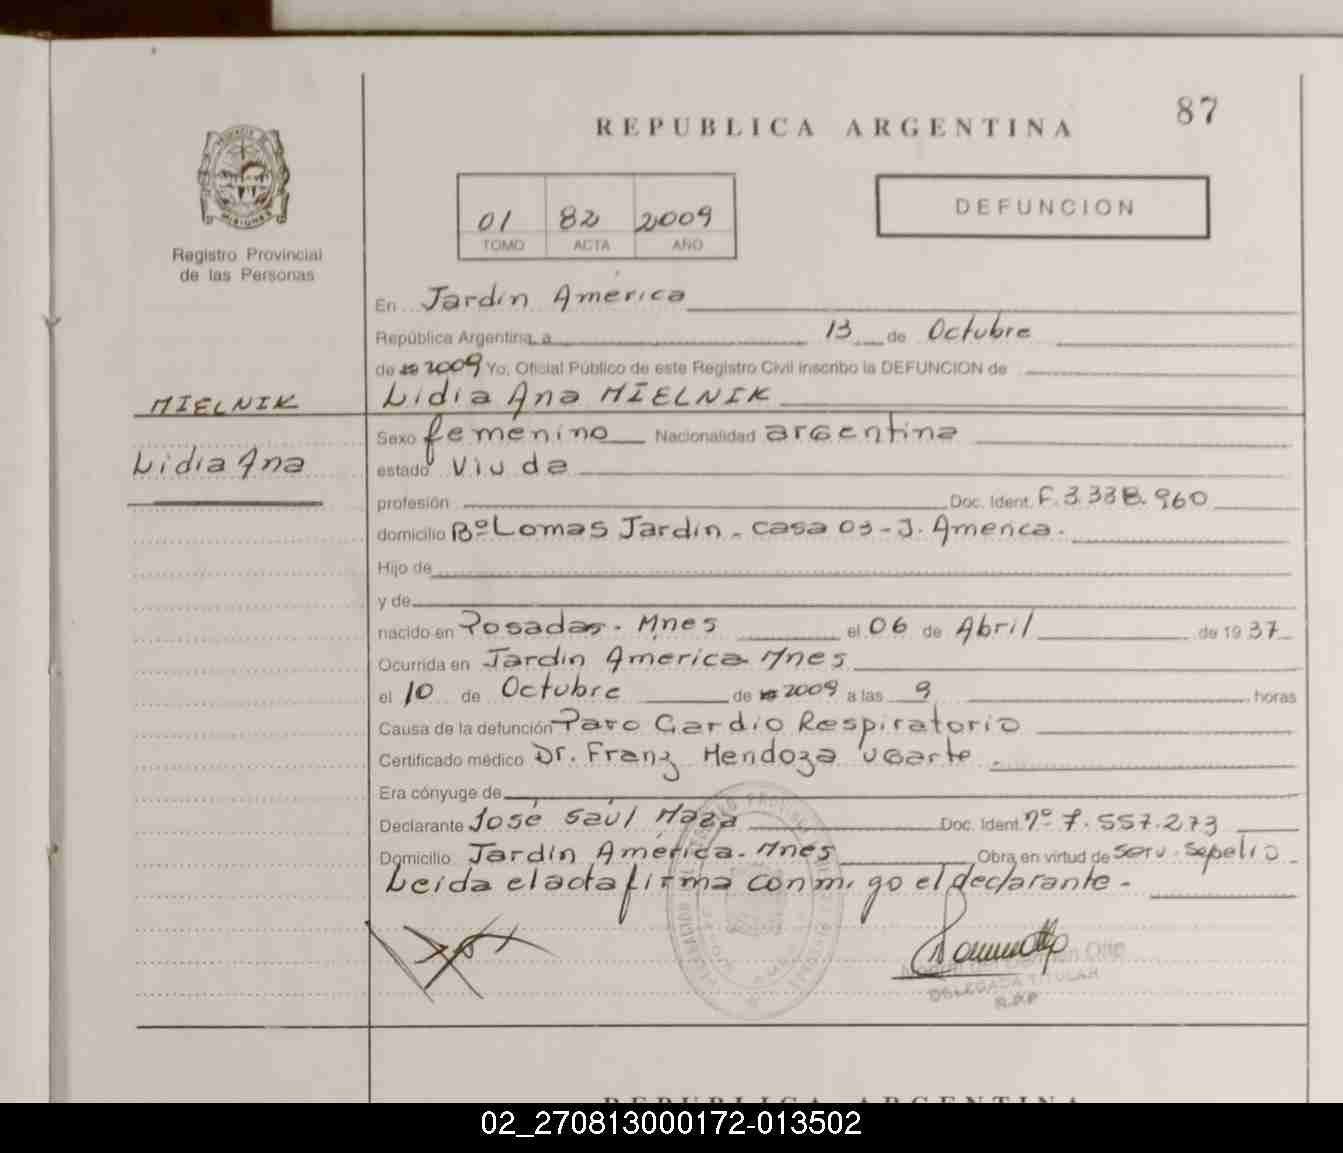 87
REPUBLICA ARGENTINA
DEFUNCION
01 82 2009
TOMO ACTA AÑO
MISIONES
Registro Provincial
de las Personas
En Jardín América
República Argentina, a 13 de Octubre
de 19 2009 Yo, Oficial Público de este Registro Civil inscribo la DEFUNCION de
MIELNIK
Lidia Ana MIELNIK
Sexo femenino Nacionalidad argentina
Lidia Ana
estado viuda
profesión Doc. Ident. F. 3.338.960
domicilio Bº Lomas Jardín - casa 03 - J. America.
Hijo de
y de
nacido en Posadas - Mnes el 06 de Abril de 19 37
Ocurrida en Jardin America Mnes
el 10 de Octubre de 19 2009 a las 9 horas
Causa de la defunción Paro Cardio Respiratorio
Certificado médico Dr. Franz Mendoza Ugarte.
Era cónyuge de
Declarante José Saúl Maza Doc. Ident. nº 7.557.273
Domicilio Jardín América - Mnes Obra en virtud de Serv. Sepelio
Leida el acta firma conmigo el declarante -
DELEGADA TITULAR
R.P.P
REPUBLICA ARGENTINA
02_270813000172-013502